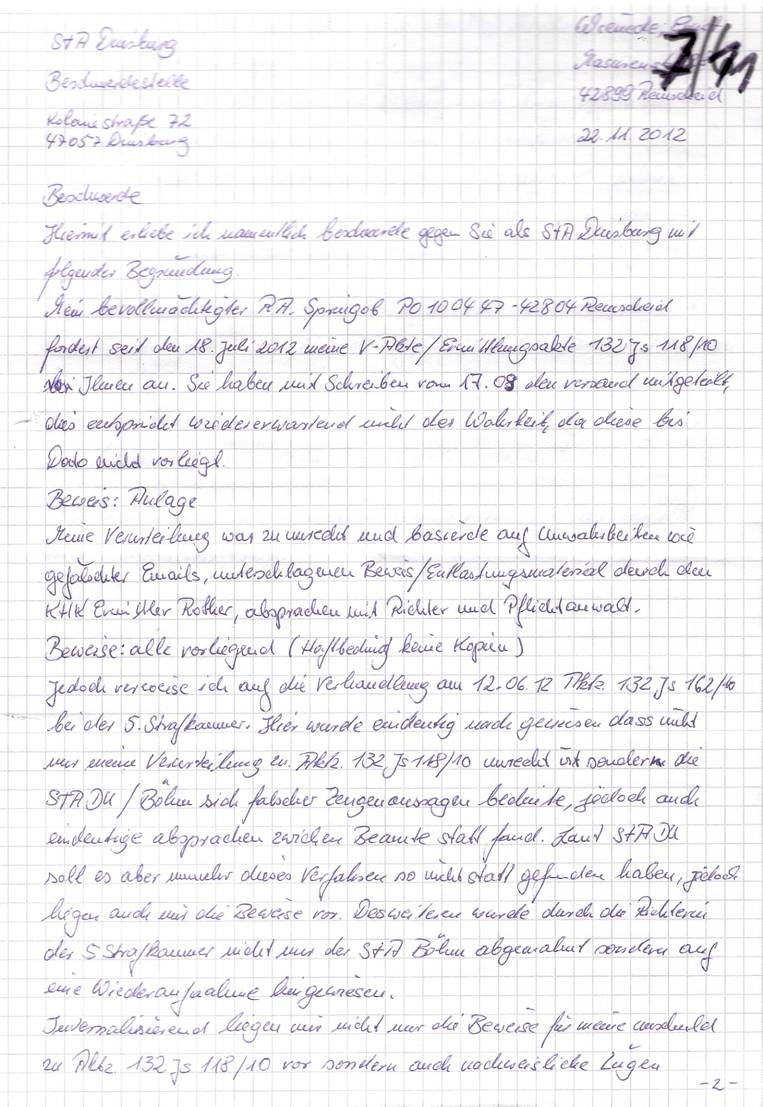 StA Duisburg
Beschwerdestelle
Kolonie straße 72
47057 Duisburg
7/41
42899 Remscheid
22.11.2012
Beschwerde
Hiermit erhebe ich namentlich beschwerde gegen Sie als StA Duisburg mit
folgender Begründung.
Mein bevollmächtigter RA. Springob PO 100447-42804 Remscheid
fordert seit den 18. Juli 2012 meine V-Akte/Ermittlungsakte 132 Js 118/10
bei Ihnen an. Sie haben mit Schreiben vom 17.08 den versand mitgeteilt,
dies entspricht wiedererwartend nicht der Wahrheit, da diese bis
Dato nicht vorliegt.
Beweis: Anlage
Meine Verurteilung war zu unrecht und basierde auf Unwahrheiten wie
gefälschter Emails, unterschlagenen Beweis/Entlastungsmaterial durch den
KHK Ermittler Rother, absprachen mit Richter und Pflichtanwalt.
Beweise: alle vorliegend (Haftbedingt keine Kopien)
Jedoch verweise ich auf die Verhandlung am 12.06.12 Aktz. 132 Js 162/10
bei der 5. Strafkammer. Hier wurde eindeutig nach gewiesen dass nicht
nur meine Verurteilung zu. Aktz. 132 Js 118/10 unrecht ist sondern die
STA DU / Böhm sich falscher Zeugenaussagen bediente, jedoch auch
eindeutige absprachen zwichen Beamte statt fand. Laut StA DU
soll es aber nunmehr dieses Verfahren so nicht statt gefunden haben, jedoch
liegen auch mir die Beweise vor. Desweiteren wurde durch die Richterin
der 5 Strafkammer nicht nur der StA Böhm abgemahnt sondern auf
eine Wiederaufnahme hingewiesen.
liegen mir nicht nur die Beweise für meine unschuld
zu Aktz. 132 Js 118/10 vor sondern auch nachweisliche Lügen
-2-